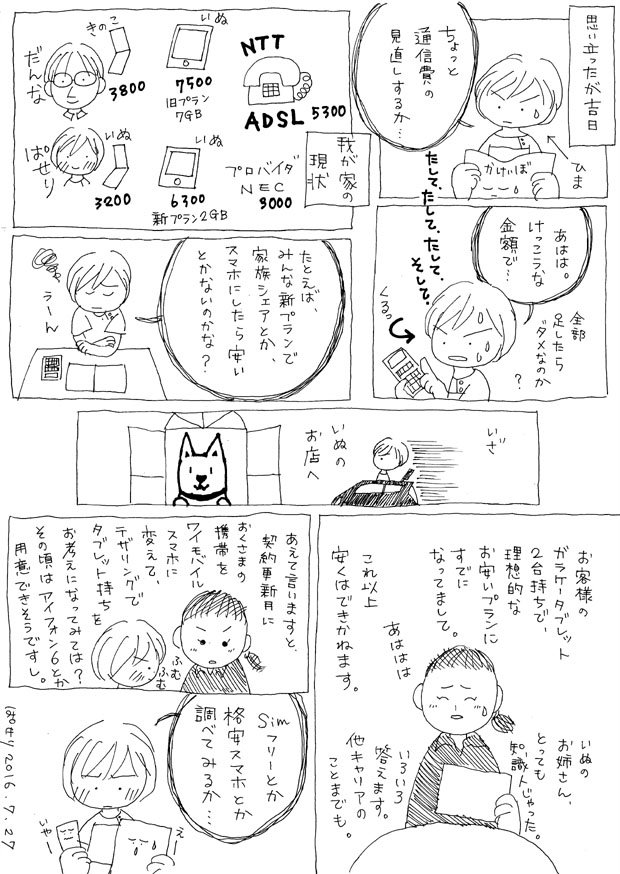 思い立ったが吉日
ちょっと
通信費の
見直しするか…
かけいぼ
ひま
我が家の
現状
だんな
きのこ
3800
いぬ
7500
旧プラン
7GB
NTT
ADSL 5300
ぱせり
いぬ
3200
いぬ
6300
新プラン2GB
プロバイダ
NEC
3000
たして、たして、たして、
そして。
あはは。
けっこうな
金額で…
全部
足したら
ダメなのか
?
くるっ
たとえば、
みんな新プランで
家族シェアとか、
スマホにしたら安い
とかないのかな?
うーん
いざ
いぬの
お店へ
お客様の
ガラケータブレット
2台持ちで、
理想的な
お安いプランに
すでに
なってまして。
あははは
これ以上
安くはできかねます。
いぬの
お姉さん、
とっても
知識人じゃった。
いろいろ
答えます。
他キャリアの
ことまでも。
あえて言いますと、
契約更新月に
おくさまの
携帯を
ワイモバイル
スマホに
変えて、
テザリングで
タブレット持ちを
お考えになってみては?
その頃はアイフォン6とか
用意できそうですし。
ふむ
ふむ
Simフリーとか
格安スマホとか
調べてみるか…
えー
いやー
ぱせり 2016.7.27